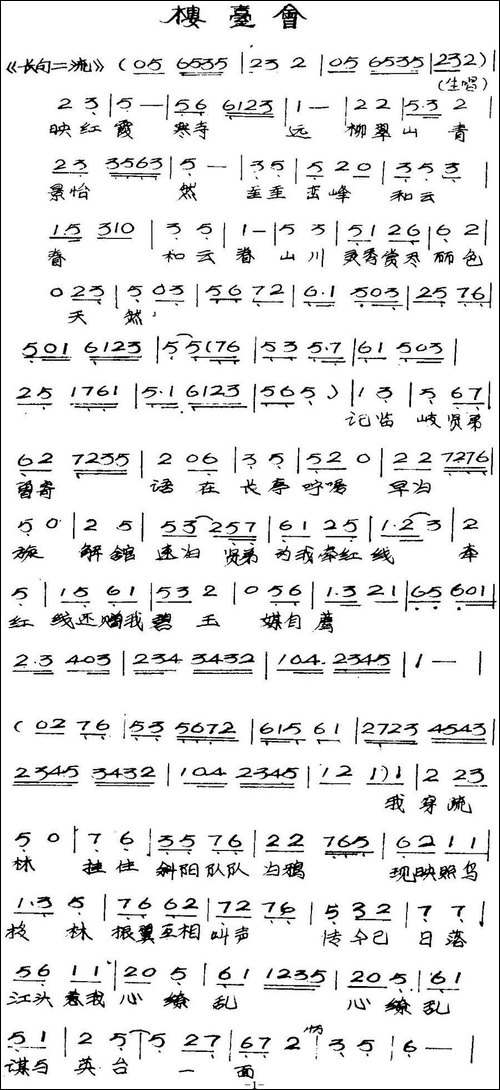 樓臺會
《长句二流》 ( 05 6535 | 23 2 | 05 6535 | 232 )
(生唱)
2 3 | 5 — | 56 6123 | 1 — | 2 2 | 5·3 2
映红霞 寒寺 远 柳翠山 青
23 3563 | 5 — | 3 5 | 5 20 | 3 5 3
景怡 然 至至 峦峰 和云
1·5 310 | 3 5 | 1 — | 5 3 | 51 26 | 6 2
眷 和云眷 山川 灵秀赏尽 丽色
0 23 | 5 03 | 56 72 | 6·1 503 | 25 76 |
天 然
501 6123 | 5 5(76 | 53 5·7 | 61 503 |
25 1761 | 5·1 6123 | 565 ) | 1 3 | 5 67 |
记临 岐贤弟
62 7235 | 2 06 | 3 5 | 52 0 | 22 7276 |
曾寄 语 在 长亭 吩嘱 早当
5 0 | 2 5 | 53 257 | 61 25 | 1·2 3 | 2
旋 解馆 速归 贤弟 为我牵红线 牵
5 | 15 61 | 532 | 0 56 | 1·3 21 | 65 601 |
红 线还赠我碧 玉 媒自薦
2·3 403 | 234 3432 | 104 2345 | 1 — |
( 02 76 | 53 5672 | 615 61 | 2723 4543 |
2345 3432 | 104 2345 | 12 1) 1 | 2 23 |
我 穿疏
5 0 | 7 6 | 35 76 | 22 765 | 62 11 |
林 挂住 斜阳队队 归鸦 现映照鸟
1·3 5 | 76 62 | 72 76 | 5 32 | 7 7 |
投 林 振翼互相 叫声 传今已 日落
56 11 | 20 5 | 61 1235 | 20 5 | 61
江头惹我 心 缭乱 心 缭乱
51 | 2 5 | 5 27 | 67 2 | 3 5 | 6 — |
谋与 英台 一 面
-1-